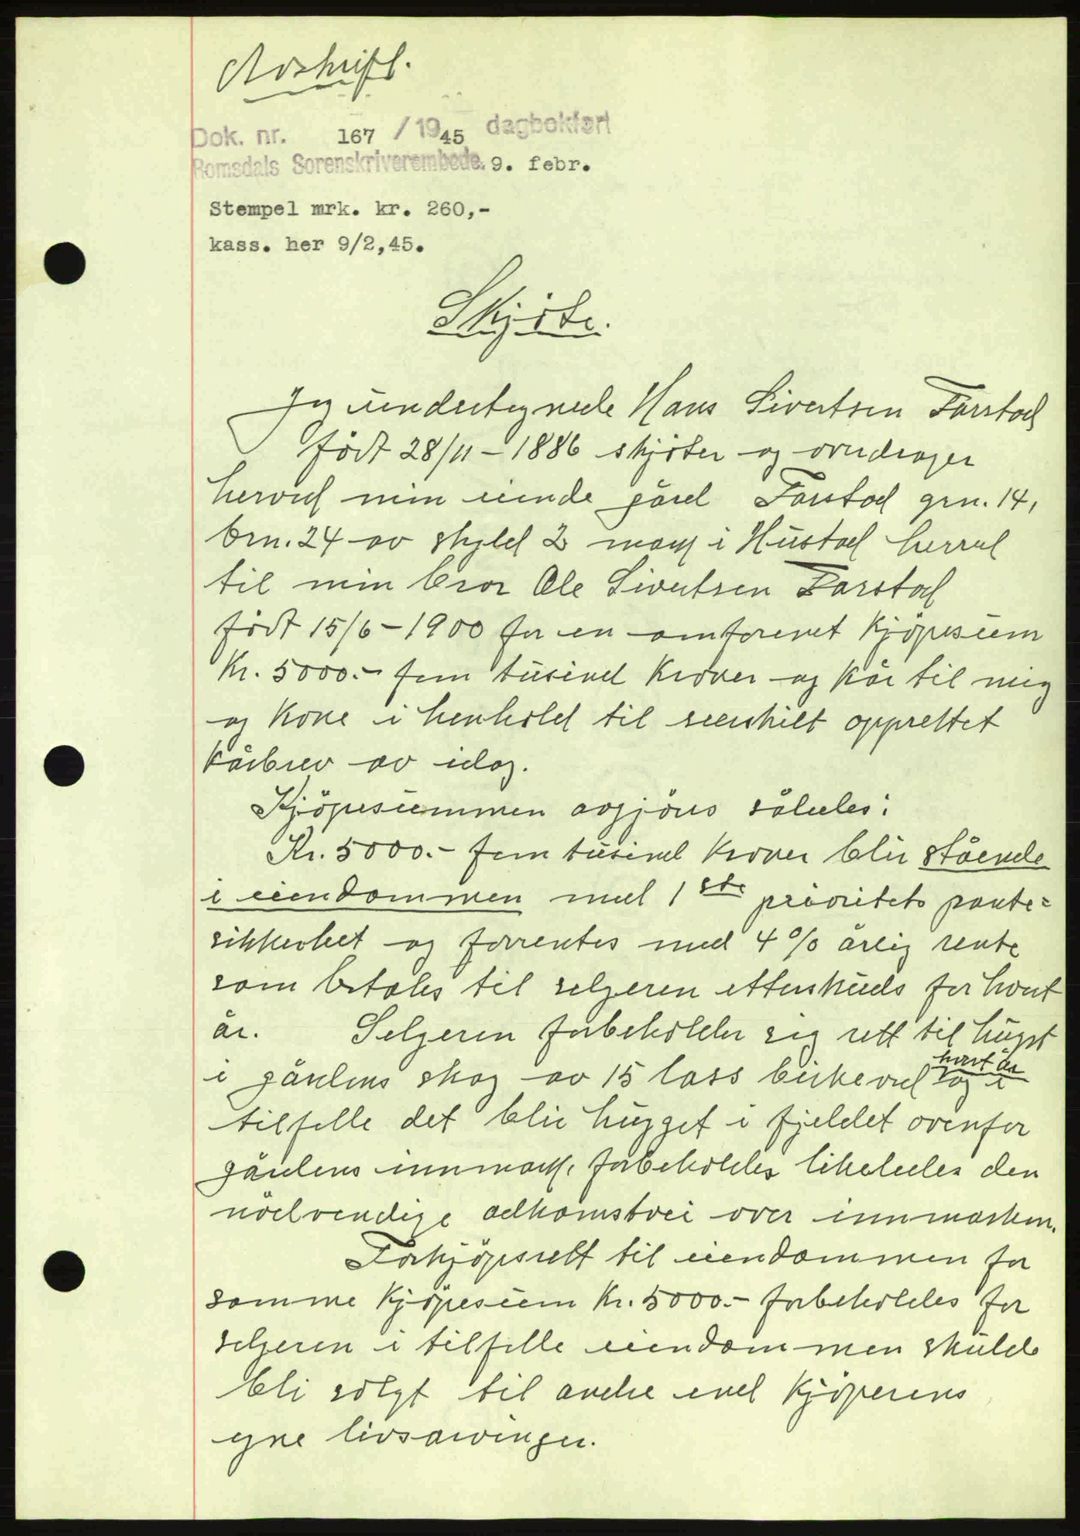 Avskrift.
Dok. nr. 167 / 1945 dagbokført
Romsdals Sorenskriverembede. 9. febr.
Stempel mrk. kr. 260,-
kass. her 9/2,45.
Skjøte.
Jeg undertegnede Hans Sivertsen Farstad
født 28/11 - 1886 skjøter og overdrager
herved min eiende gård Farstad grn. 14,
brn. 24 av skyld 2 mark i Hustad herred
til min bror Ole Sivertsen Farstad
født 15/6 - 1900 for en omforenet Kjöpesum
Kr. 5000.- fem tusind Kroner og Kår til mig
og Kone i henhold til særskilt opprettet
Kårbrev av idag.
Kjöpesummen avgjöres således:
Kr. 5000.- fem tusind Kroner blir stående
i eiendommen med 1ste prioritets pante=
sikkerhet og forrentes med 4% årlig rente
som betales til selgeren etterskuds for hvert
år. Selgeren forbeholder sig rett til hugst
i gårdens skog av 15 lass birkeved hvert år og i
tilfelle det blir hugget i fjeldet ovenfor
gårdens innmark, forbeholdes likeledes den
nödvendige adkomstvei over innmarken.
Forkjöpsrett til eiendommen for
samme Kjöpesum Kr. 5000.- forbeholdes for
selgeren i tilfelle eiendommen skulde
bli solgt til andre end Kjöperens
egne livsarvinger.